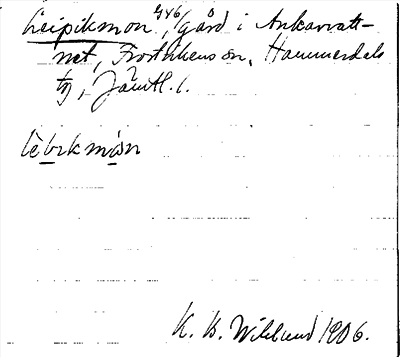 Leipikmon 446, gård i Ankarvatt-
net, Frostvikens sn, Hammerdals
tg, Jämtl. l.
lèbᴉkmòn
K. B. Wiklund 1906.